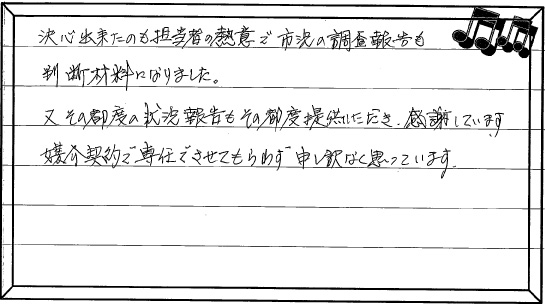 決心出来たのも担当者の熱意で市況の調査報告も
判断材料になりました。
又その都度の状況報告もその都度提供いただき、感謝しています
媒介契約で専任でさせてもらわず申し訳なく思っています。